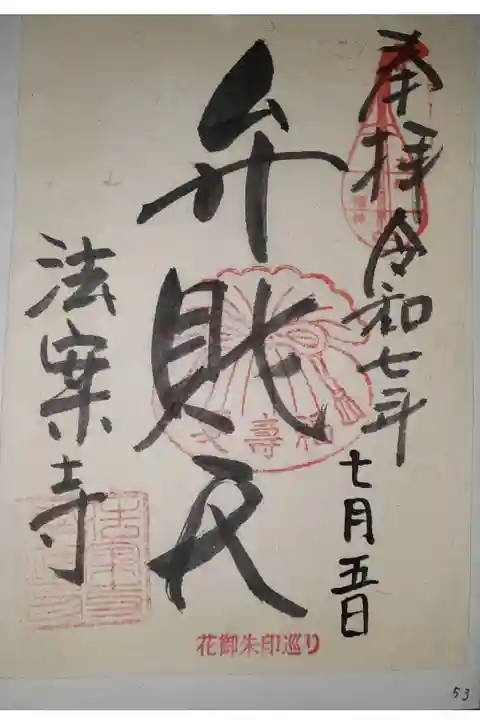 奉拝 令和七年
七月五日
弁財天
福寿天
法案寺
花御朱印巡り
53